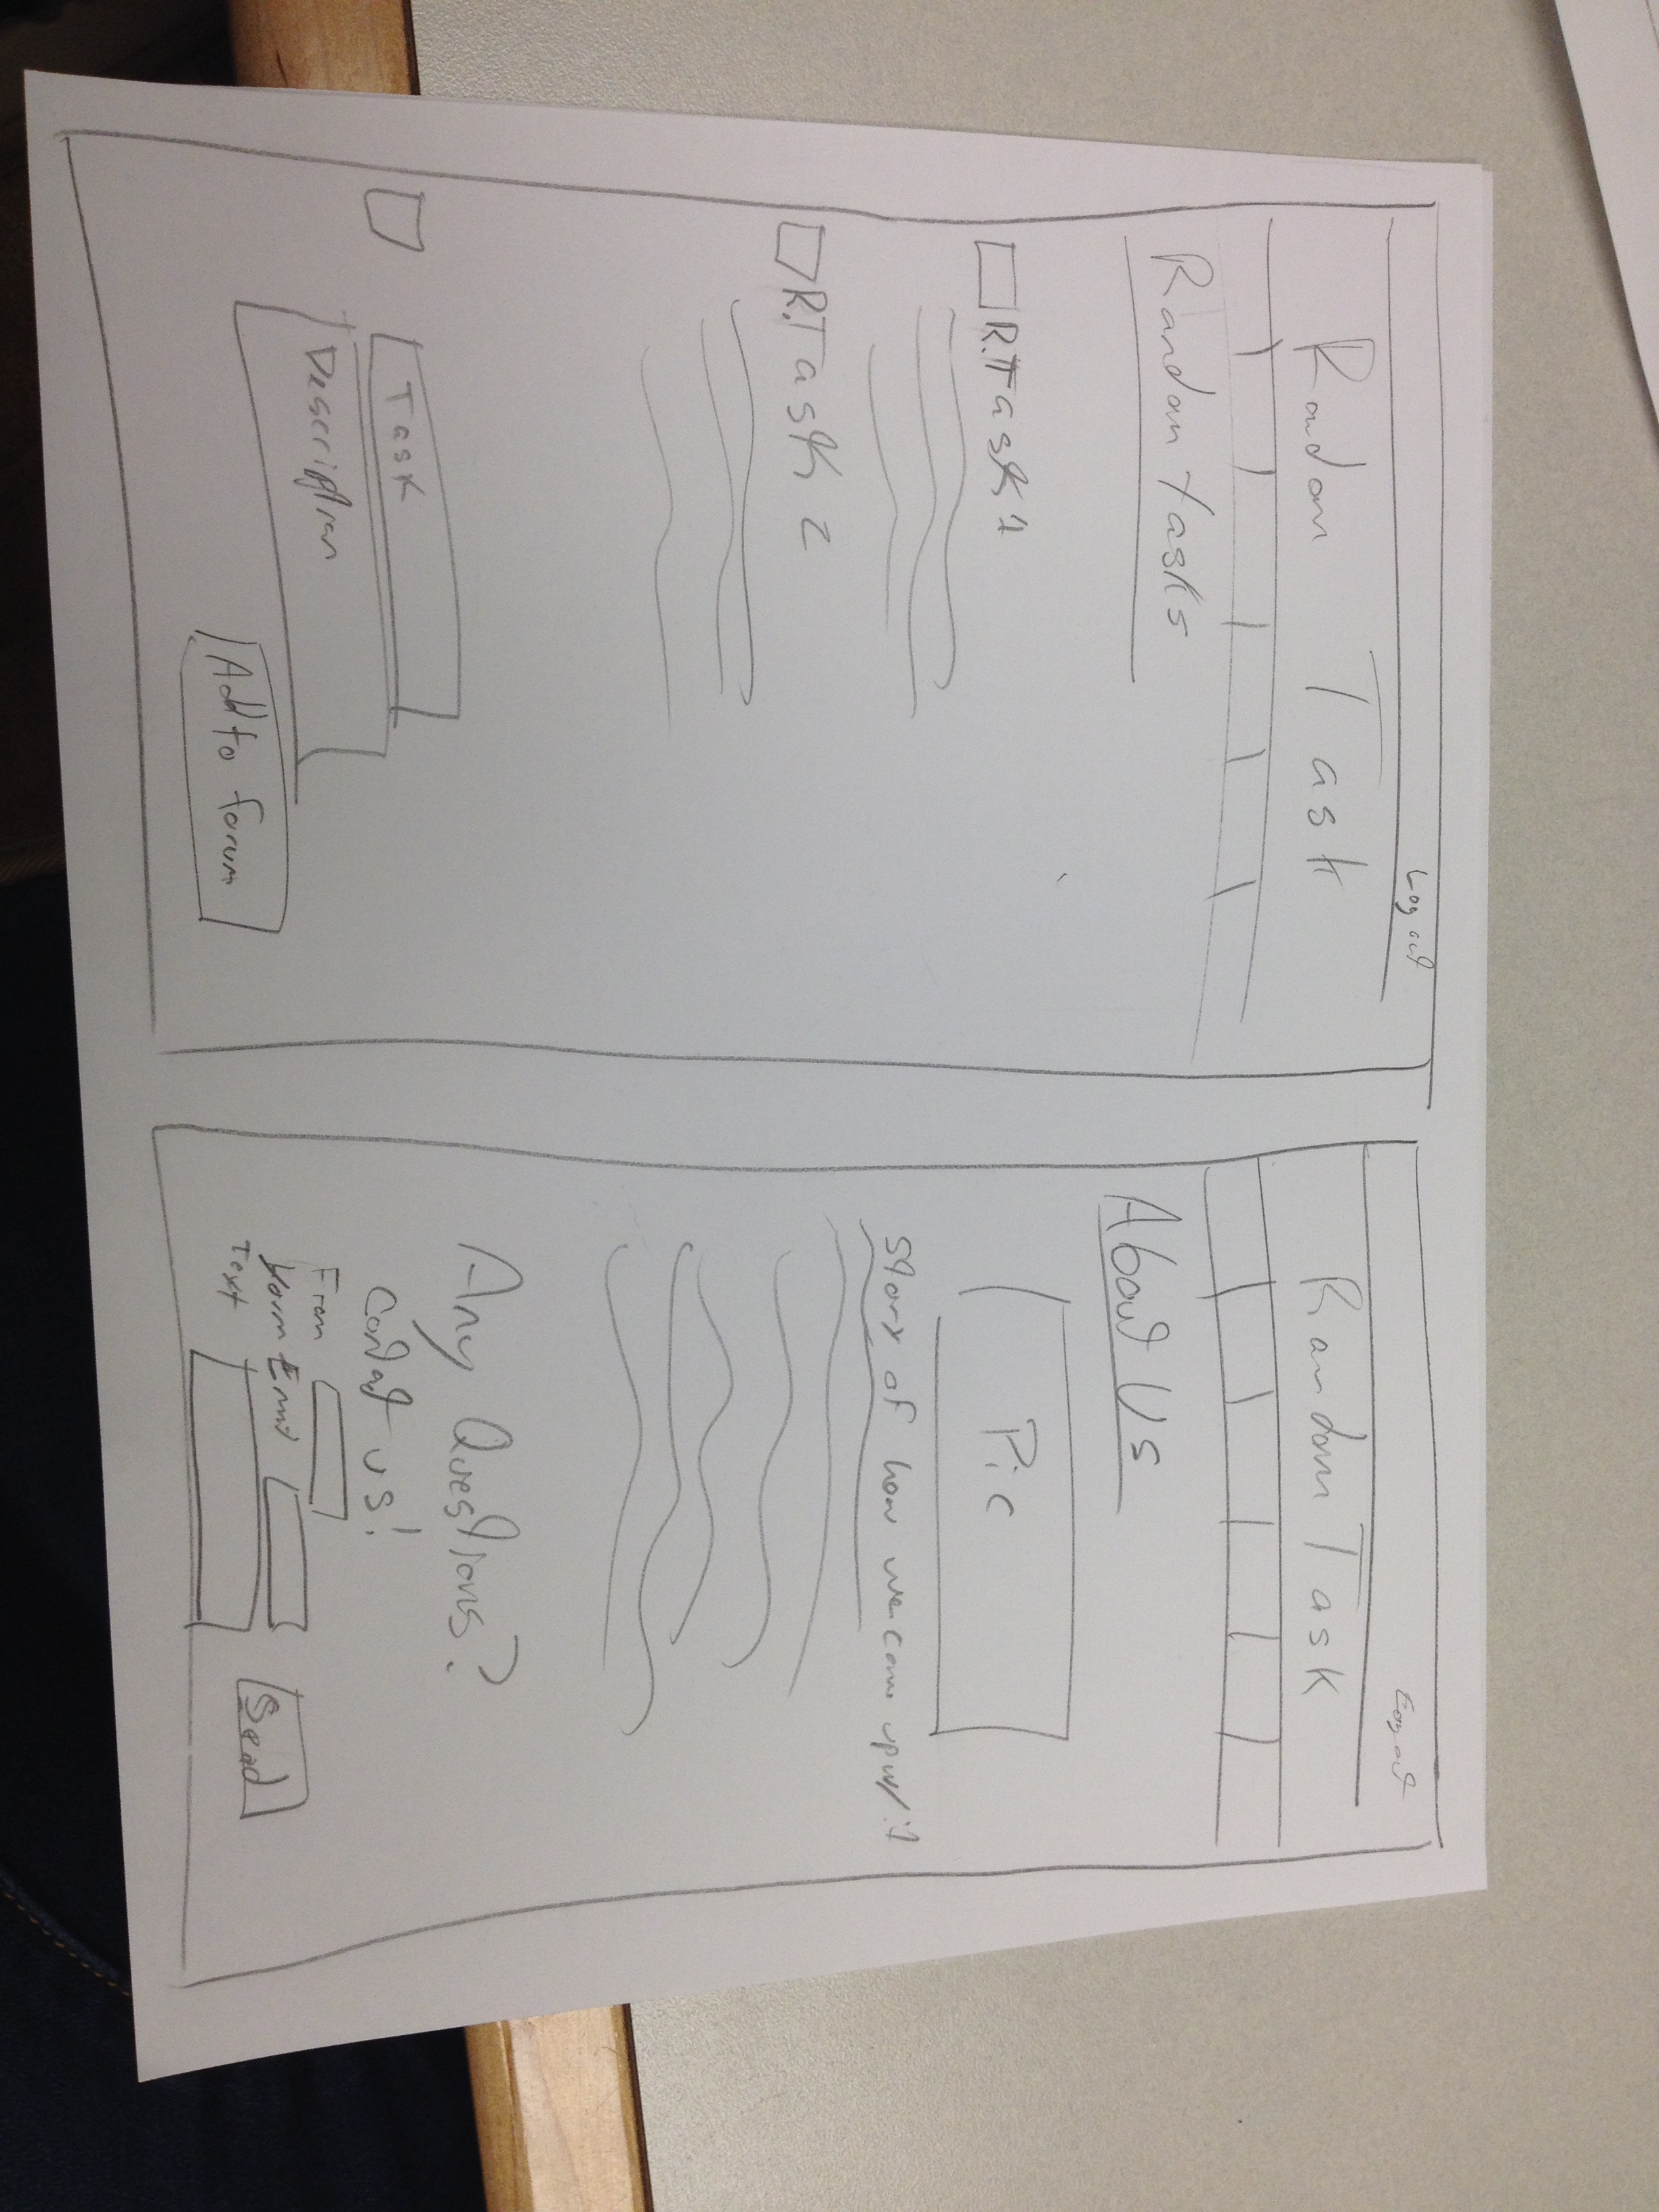 Log out
Random Task
Random tasks
R.Task 1
R.Task 2
Task
Description
Add to forum
Log out
Random Task
About Us
Pic
Story of how we came up w/ it
Any Questions?
Contact us!
From
Your Email
Text
Send